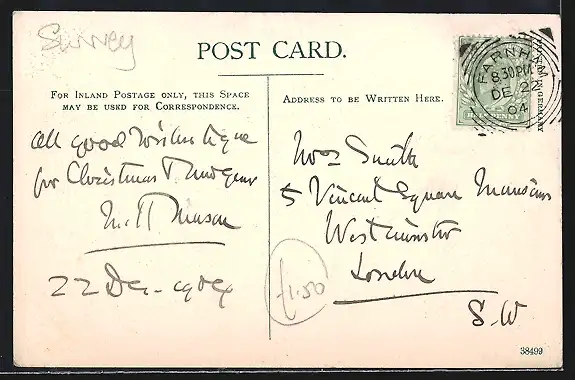 Surrey
POST CARD.
FOR INLAND POSTAGE ONLY, THIS SPACE
MAY BE USED FOR CORRESPONDENCE.
ADDRESS TO BE WRITTEN HERE.
FARNHAM
8.30PM
DE 22
04
All good wishes to you
for Christmas & New Year
Mason
22 Dec. 1904
Mrs Smith
5 Vincent Square Mansions
Westminster
London
S.W
£1.50
38499